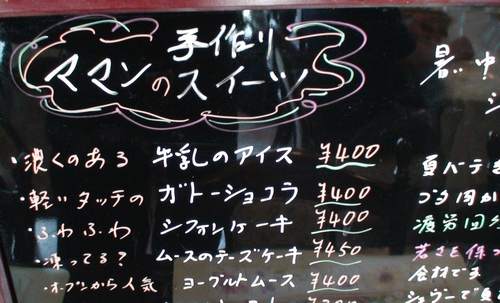 手作り
ママンのスイーツ
・濃くのある 牛乳のアイス ¥400
・軽いタッチの ガトーショコラ ¥400
・ふわふわ シフォンケーキ ¥400
・凍ってる? ムースのチーズケーキ ¥450
・オープンから人気 ヨーグルトムース ¥400
暑中
夏バテ
ゴマ
疲労回
若さを保つ
食材でる